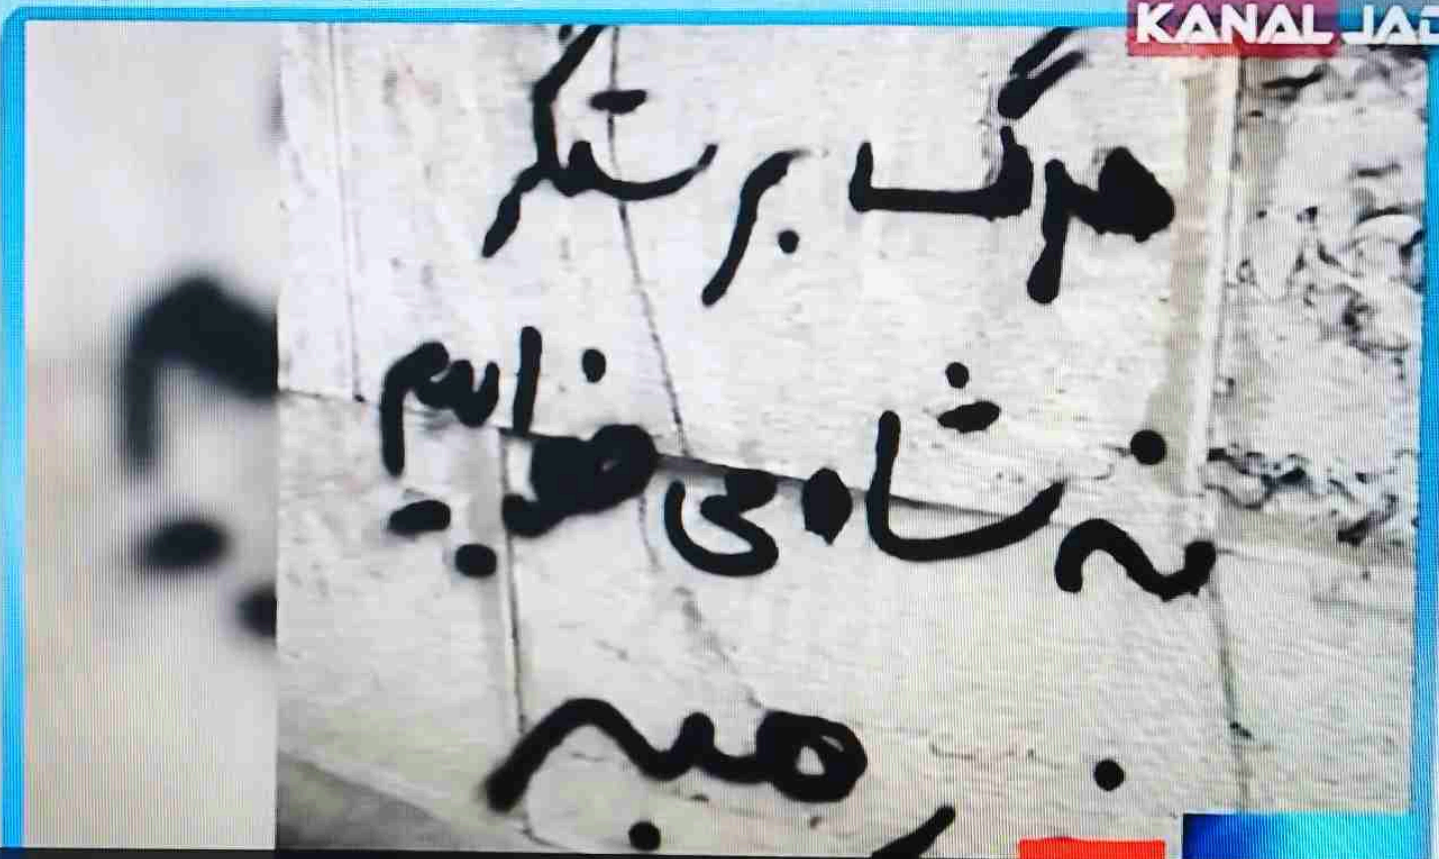 KANAL JAD
مرگ بر ستمگر
نه شاهی خواهیم
نه رهبر